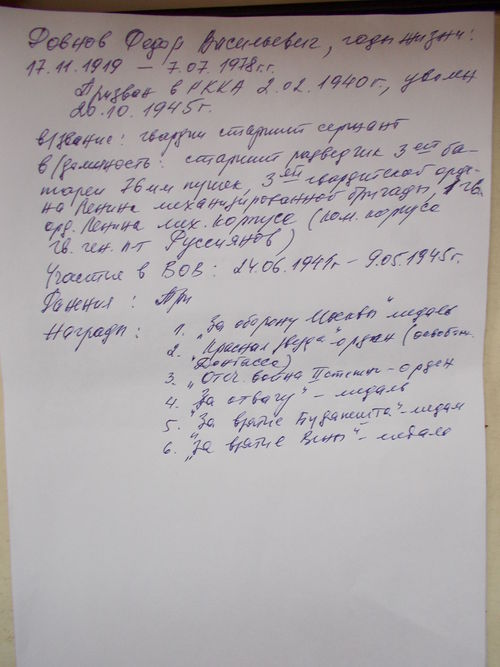 Ровнов Федор Васильевич, годы жизни:
17.11.1919 – 7.07.1978 г.г.
Призван в РККА 2.02.1940г., уволен
20.10.1945г.
в/звание: гвардии старшит сержант
в/должность: старшит разведчик 3ей ба-
тареи 76 мм пушек, 3ей гвардейской орде-
на Ленина механизированной бригады, 1 гв.
орд. Ленина мех. корпуса (ком. корпуса
гв. ген. л-т Руссиянов)
Участие в ВОВ: 24.06.1941г – 9.05.1945г.
Ранения: Три
Награды: 1. „За оборону Москвы" медаль
2. „Красная звезда" – орден (освобож.
Донбасса)
3. „Отеч. война II степени – орден
4. „За отвагу" – медаль
5. „За взятие Будапешта" – медаль
6. „За взятие Вены" – медаль